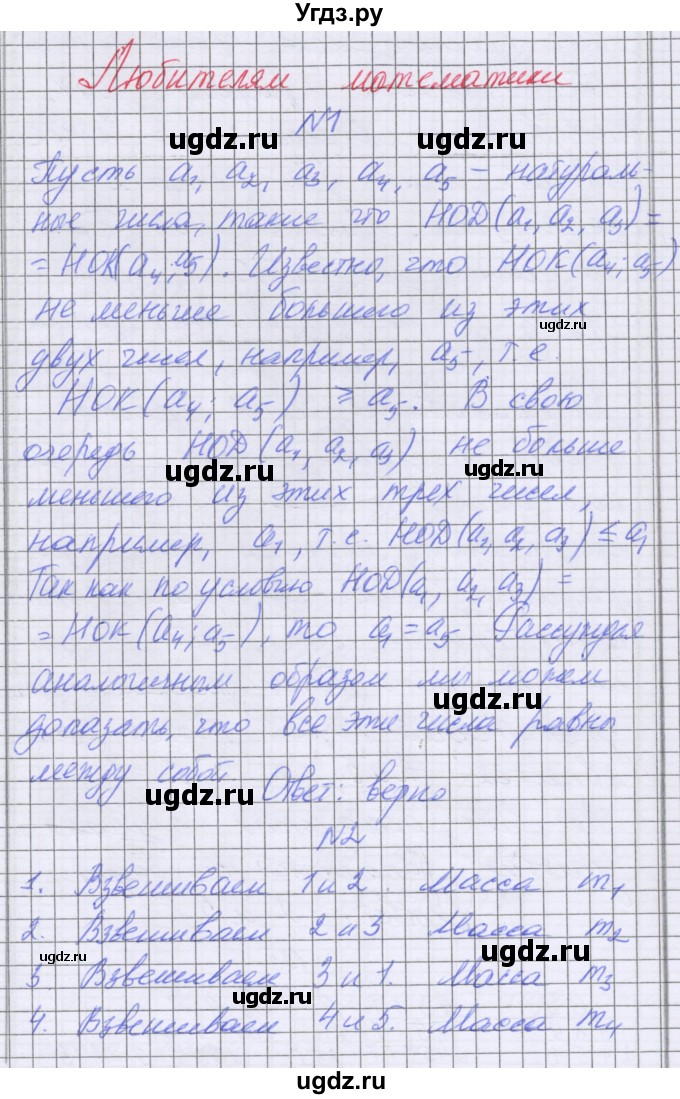 Угдз.ру
Любителям математики
N1
Пусть a1, a2, a3, a4, a5 – натураль-
ные числа, такие что НОД(a1, a2, a3)=
= НОК(a4; a5). Известно, что НОК(a4; a5)
не меньше большего из этих
двух чисел, например, a5, т.е.
НОК(a4; a5) ≥ a5. В свою
очередь НОД(a1, a2, a3) не больше
меньшего из этих трех чисел,
например, a1, т.е. НОД(a1, a2, a3) ≤ a1
Так как по условию НОД(a1, a2, a3) =
= НОК(a4; a5), то a1 = a5 Рассуждая
аналогичным образом мы можем
доказать, что все эти числа равны
между собой Ответ: верно
N2
1. Взвешиваем 1 и 2. Масса m1
2. Взвешиваем 2 и 3 Масса m2
3. Взвешиваем 3 и 1. Масса m3
4. Взвешиваем 4 и 5. Масса m4
ugdz.ru
ugdz.ru
ugdz.ru
ugdz.ru
ugdz.ru
ugdz.ru
ugdz.ru
ugdz.ru
ugdz.ru
ugdz.ru
ugdz.ru
ugdz.ru